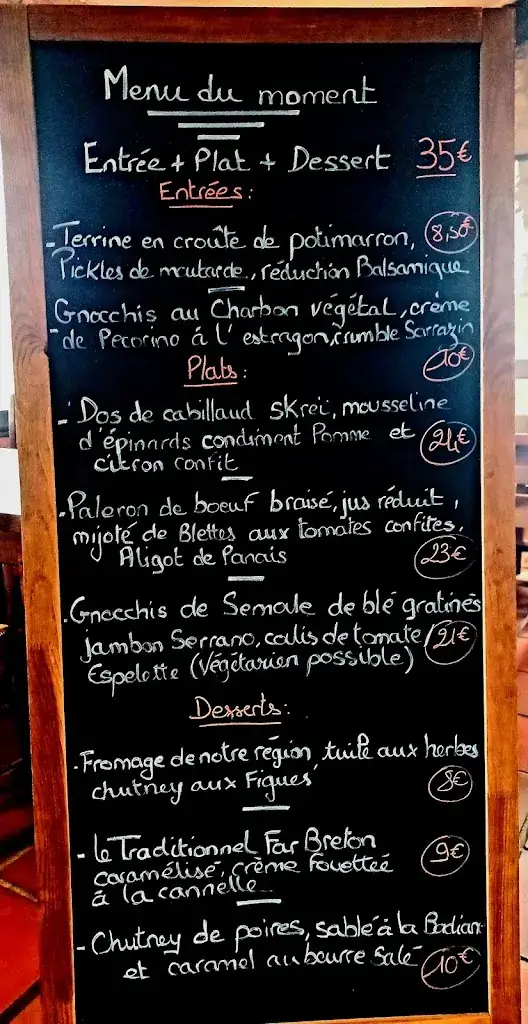 Menu du moment
Entrée + Plat + Dessert 35€
Entrées :
- Terrine en croûte de potimarron, 8,50€
Pickles de moutarde, réduction Balsamique
Gnocchis au Charbon végétal, crème
- de Pecorino á l'estragon, crumble Sarrazin
10€
Plats :
- Dos de cabillaud skrei, mousseline
d'épinards condiment Pomme et 24€
citron confit
- Paleron de boeuf braisé, jus réduit,
mijoté de Blettes aux tomates confites,
Aligot de Panais 23€
- Gnocchis de Semoule de blé gratinés
jambon Serrano, coulis de tomate/ 21€
Espelette (Végétarien possible)
Desserts :
- Fromage de notre région, tuile aux herbes
chutney aux Figues 8€
- Le Traditionnel Far Breton
caramélisé, crème fouettée 9€
à la cannelle
- Chutney de poires, sablé à la Badiane
et caramel au beurre salé 10€